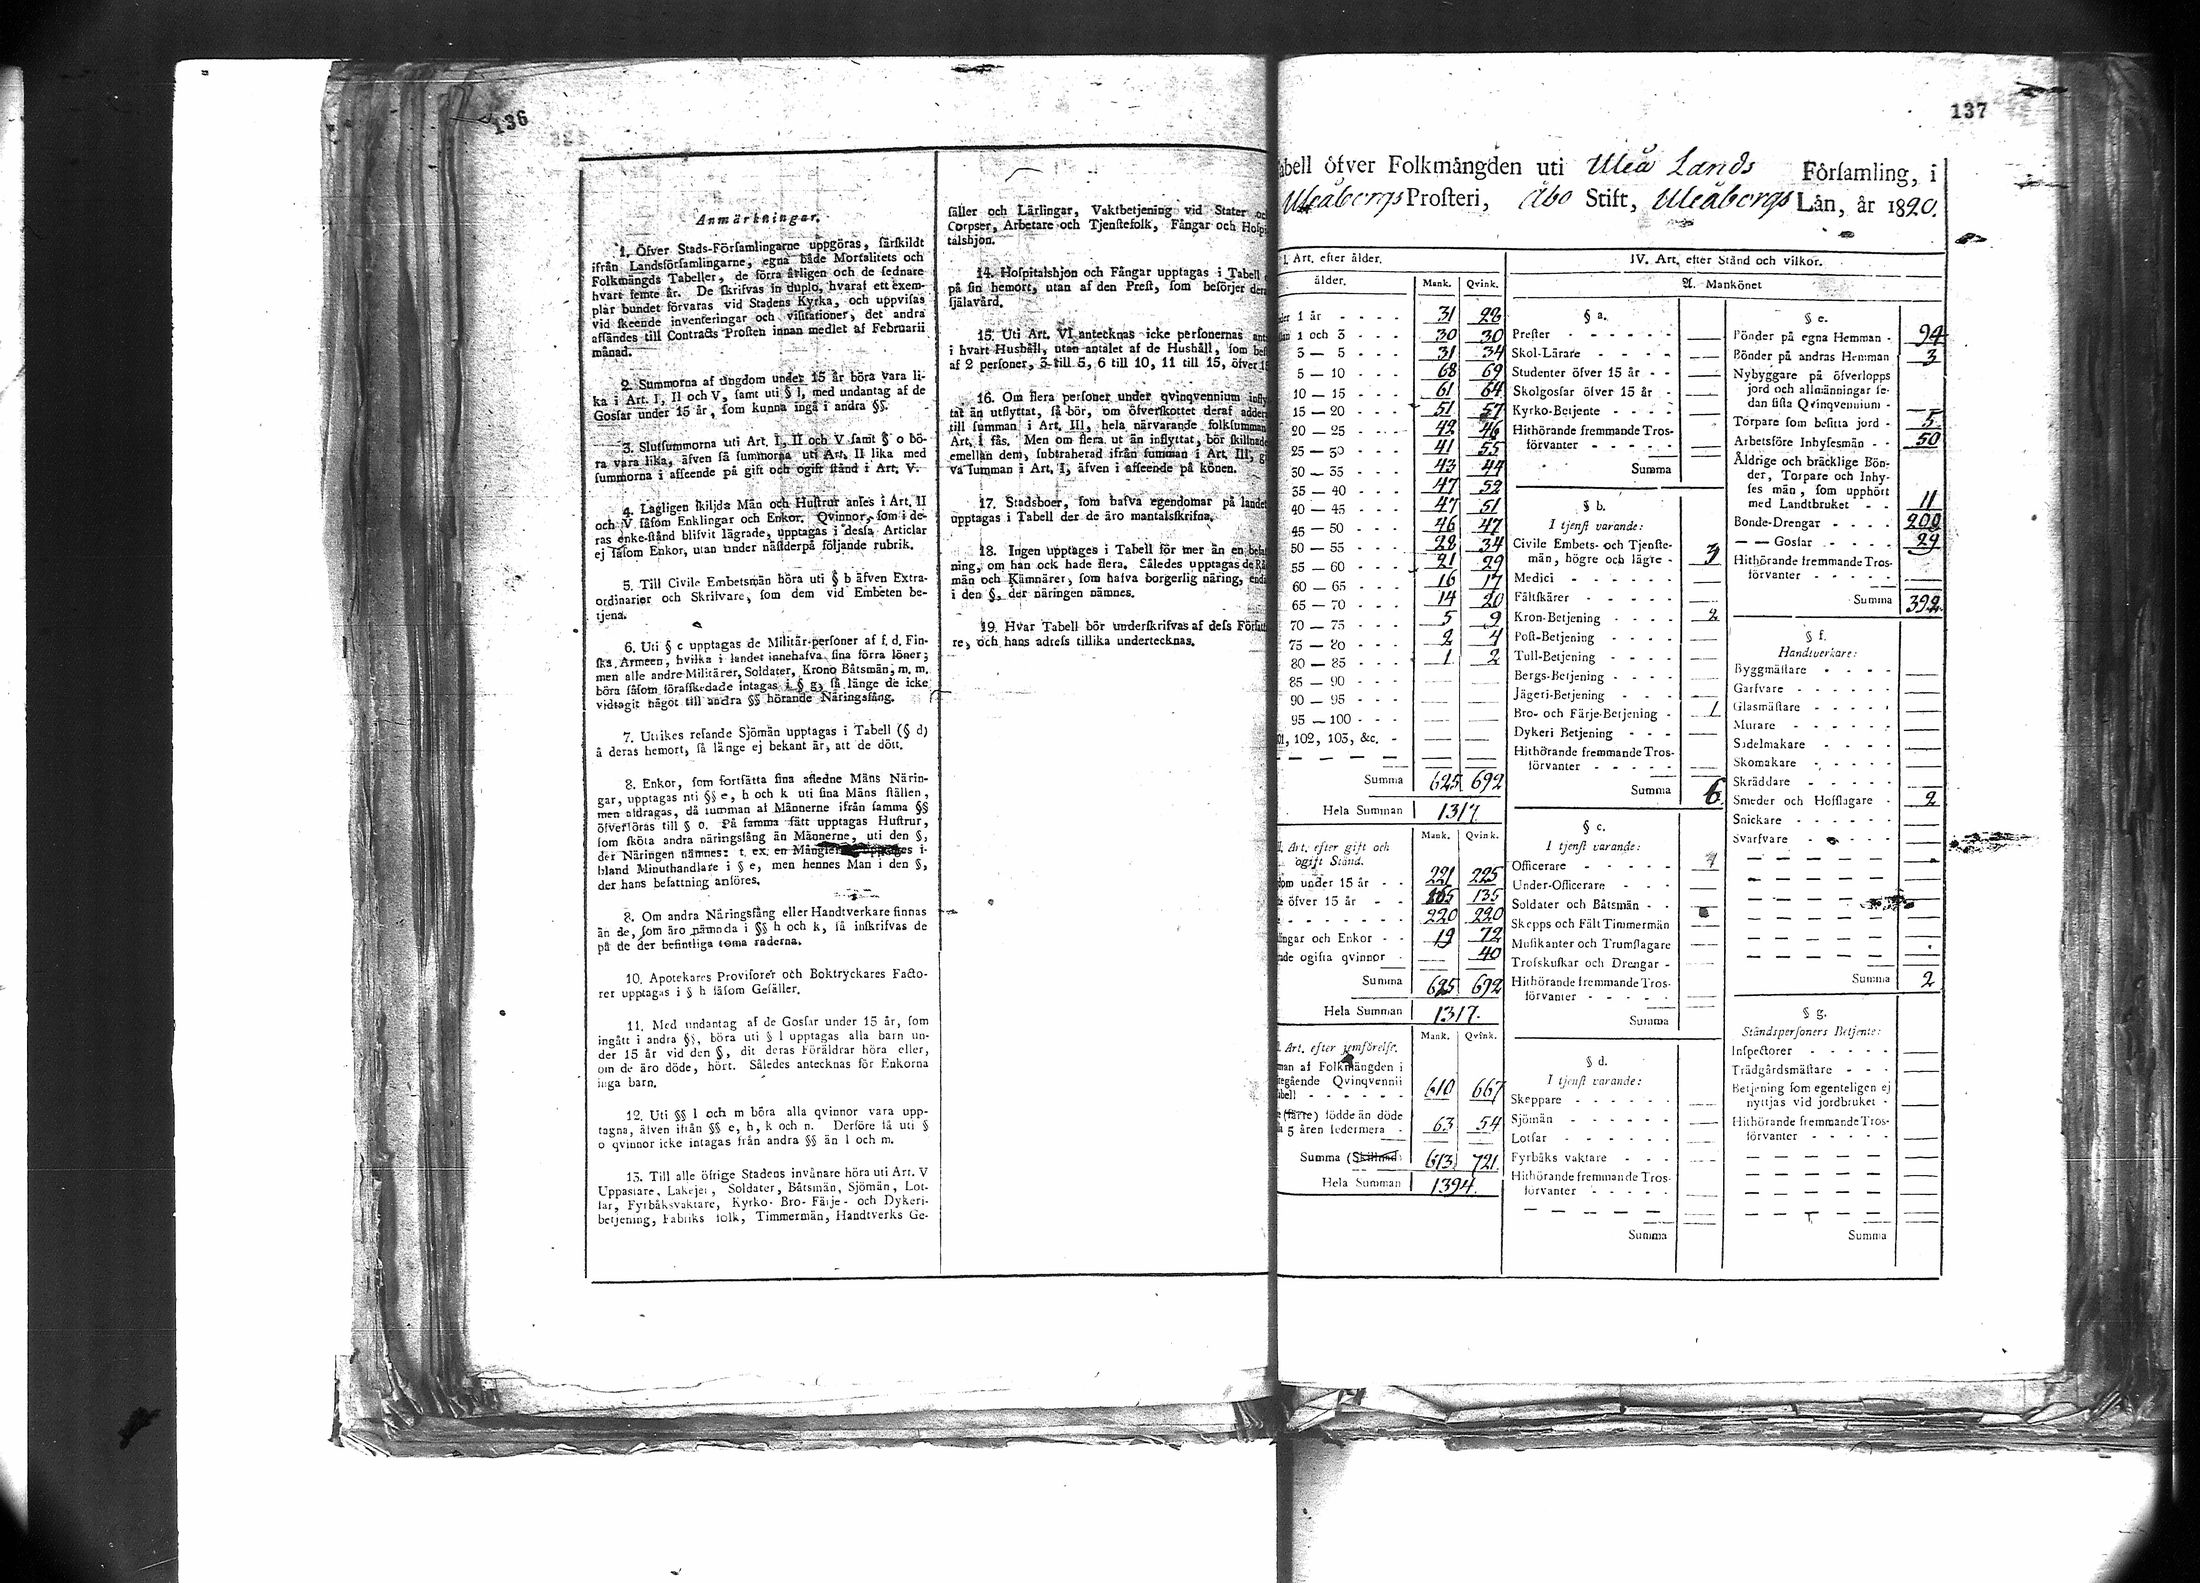 136
Anmärkningar.
1. Öfver Stads-Församlingarne uppgöras, särskildt
ifrån Landsförsamlingarne, egna både Mortalitets och
Folkmängds Tabeller, de förra årligen och de sednare
hvart femte år. De skrifvas in duplo, hvaraf ett exem-
plar bundet förvaras vid Stadens Kyrka, och uppvisas
vid skeende inventeringar och visitationer, det andra
afsändes till Contracts Prosten innan medlet af Februarii
månad.
2. Summorna af ungdom under 15 år böra vara li-
ka i Art. I, II och V, samt uti § l, med undantag af de
Gossar under 15 år, som kunna ingå i andra §§.
3. Slutsummorna uti Art. I, II och V samt § o bö-
ra vara lika, äfven så summorna uti Art. II lika med
summorna i afseende på gift och ogift stånd i Art. V.
4. Lagligen skiljda Män och Hustrur anses i Art. II
och V såsom Enklingar och Enkor. Qvinnor, som i de-
ras enke-stånd blifvit lägrade, upptagas i dessa Articlar
ej såsom Enkor, utan under nästderpå följande rubrik.
5. Till Civile Embetsmän höra uti § b äfven Extra-
ordinarier och Skrifvare, som dem vid Embeten be-
tjena.
6. Uti § c upptagas de Militär-personer af f. d. Fin-
ska Armeen, hvilka i landet innehafva sina förra löner;
men alle andre Militärer, Soldater, Krono Båtsmän, m. m.
böra såsom förafskedade intagas i § g, så länge de icke
vidtagit något till andra §§ hörande Näringsfång.
7. Utrikes resande Sjömän upptagas i Tabell (§ d)
å deras hemort, så länge ej bekant är, att de dött.
8. Enkor, som fortsätta sina afledne Mäns Närin-
gar, upptagas uti §§ e, h och k uti sina Mäns ställen,
men afdragas, då summan af Männerne ifrån samma §§
öfverföras till § o. På samma sätt upptagas Hustrur,
som sköta andra näringsfång än Männerne, uti den §,
der Näringen nämnes: t. ex. en upptages i-
bland Minuthandlare i § e, men hennes Man i den §,
der hans befattning anföres.
8. Om andra Näringsfång eller Handtverkare finnas
än de, som äro nämnda i §§ h och k, så inskrifvas de
på de der befintliga toma raderna.
10. Apotekares Provisorer och Boktryckares Facto-
rer upptagas i § h såsom Gesäller.
11. Med undantag af de Gossar under 15 år, som
ingått i andra §§, böra uti § l upptagas alla barn un-
der 15 år vid den §, dit deras Föräldrar höra eller,
om de äro döde, hört. Således antecknas för Enkorna
inga barn.
12. Uti §§ l och m böra alla qvinnor vara upp-
tagna, äfven ifrån §§ e, h, k och n. Derföre få uti §
o qvinnor icke intagas från andra §§ än l och m.
13. Till alle öfrige Stadens invånare höra uti Art. V
Uppassare, Lakejer, Soldater, Båtsmän, Sjömän, Lot-
sar, Fyrbåksvaktare, Kyrko- Bro- Färje- och Dykeri-
betjening, Fabriks folk, Timmermän, Handtverks Ge-
säller och Lärlingar, Vaktbetjening vid Stater
Corpser, Arbetare och Tjenstefolk, Fångar och
talshjon.
14. Hospitalshjon och Fångar upptagas i Tabell
på sin hemort, utan af den Prest, som besörjer
själavård.
15. Uti Art. VI antecknas icke personernas
i hvart Hushåll, utan antalet af de Hushåll, som
af 2 personer, 3 till 5, 6 till 10, 11 till 15, öfver
16. Om flera personer under qvinqvennium
tat än utflyttat, så bör, om öfverskottet deraf
till summan i Art. III, hela närvarande
Art. I fås. Men om flera ut än inflyttat, bör
emellan dem, subtraherad ifrån summan i Art. III,
va summan i Art. I, äfven i afseende på könen.
17. Stadsboer, som hafva egendomar på
upptagas i Tabell der de äro mantalsskrifna.
18. Ingen upptages i Tabell för mer än en
ning, om han ock hade flera. Således upptagas de
män och Kämnärer, som hafva borgerlig näring,
i den §, der näringen nämnes.
19. Hvar Tabell bör underskrifvas af dess
re, och hans adress tillika undertecknas.
137
Folkmängden uti Uleå Lands Församling, i
Uleåborgs Prosteri, Åbo Stift, Uleåborgs Län, år 1820.
I. Art. efter ålder.
ålder. Mank. Qvink.
1 år - - - - 31 28
1 och 3 - - - 30 30
3 — 5 - - - 31 34
5 — 10 - - - 68 69
10 — 15 - - - 61 64
15 — 20 - - - 51 57
20 — 25 - - - 42 46
25 — 30 - - - 41 55
30 — 35 - - - 43 44
35 — 40 - - - 47 52
40 — 45 - - - 47 51
45 — 50 - - - 46 47
50 — 55 - - - 28 34
55 — 60 - - - 21 29
60 — 65 - - - 16 17
65 — 70 - - - 14 20
70 — 75 - - - 5 9
75 — 80 - - - 2 4
80 — 85 - - - 1 2
85 — 90 - - -
90 — 95 - - -
95 — 100 - - -
102, 103, &c. -
Summa 625 692
Hela Summan 1317.
Mank. Qvink.
Art. efter gift och
ogift Stånd.
under 15 år - - 221 225
öfver 15 år - - 165 135
- - - - - - 220 220
och Enkor - - 19 72
ogifta qvinnor - 40
Summa 625 692
Hela Summan 1317.
Mank. Qvink.
Art. efter jemförelse.
af Folkmängden i
Qvinqvennii
- - - - - 610 667
(färre) födde än döde
5 åren sedermera - 63 54
Summa (Skillnad) 673 721.
Hela Summan 1394.
IV. Art. efter Stånd och vilkor.
A. Mankönet
§ a.
Prester - - - - -
Skol-Lärare - - - -
Studenter öfver 15 år - -
Skolgossar öfver 15 år -
Kyrko-Betjente - - - -
Hithörande fremmande Tros-
förvanter - - - -
Summa
§ b.
I tjenst varande:
Civile Embets- och Tjenste-
män, högre och lägre - 3
Medici - - - - -
Fältskärer - - - - -
Kron-Betjening - - - - 2
Post-Betjening - - - -
Tull-Betjening - - - -
Bergs-Betjening - - - -
Jägeri-Betjening - - -
Bro- och Färje-Betjening - 1
Dykeri Betjening - - -
Hithörande fremmande Tros-
förvanter - - - - -
Summa 6.
§ c.
I tjenst varande:
Officerare - - - - -
Under-Officerare - - -
Soldater och Båtsmän - -
Skepps och Fält Timmermän
Musikanter och Trumslagare
Trosskuskar och Drengar -
Hithörande fremmande Tros-
förvanter - - - - -
Summa
§ d.
I tjenst varande:
Skeppare - - - - -
Sjömän - - - - - -
Lotsar - - - - - -
Fyrbåks vaktare - - -
Hithörande fremmande Tros-
förvanter - - - - -
Summa
§ e.
Bönder på egna Hemman - 94
Bönder på andras Hemman 3
Nybyggare på öfverlopps
jord och allmänningar se-
dan sista Qvinqvennium -
Torpare som besitta jord - 5
Arbetsföre Inhysesmän - - 50
Åldrige och bräcklige Bön-
der, Torpare och Inhy-
ses män, som upphört
med Landtbruket - - 11
Bonde-Drengar - - - - 200
— — Gossar - - - - 29
Hithörande fremmande Tros-
förvanter - - - - -
Summa 392.
§ f.
Handtverkare:
Byggmästare - - - -
Garfvare - - - - - -
Glasmästare - - - - -
Murare - - - - - -
Sadelmakare - - - -
Skomakare - - - - -
Skräddare - - - - -
Smeder och Hofslagare - 2
Snickare - - - - -
Svarfvare - - - -
Summa 2
§ g.
Ståndspersoners Betjente:
Inspectorer - - - - -
Trädgårdsmästare - - -
Betjening som egenteligen ej
nyttjas vid jordbruket -
Hithörande fremmande Tros-
förvanter - - - - -
Summa